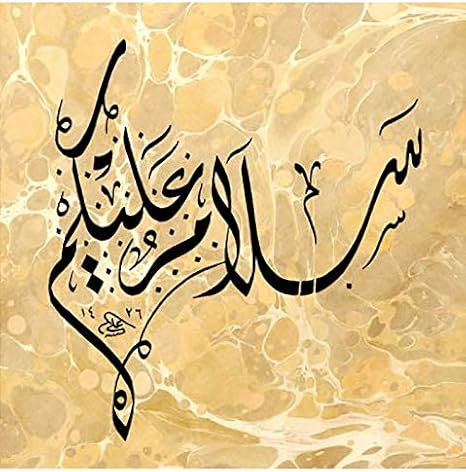 سلام عليكم
١٤٢٦